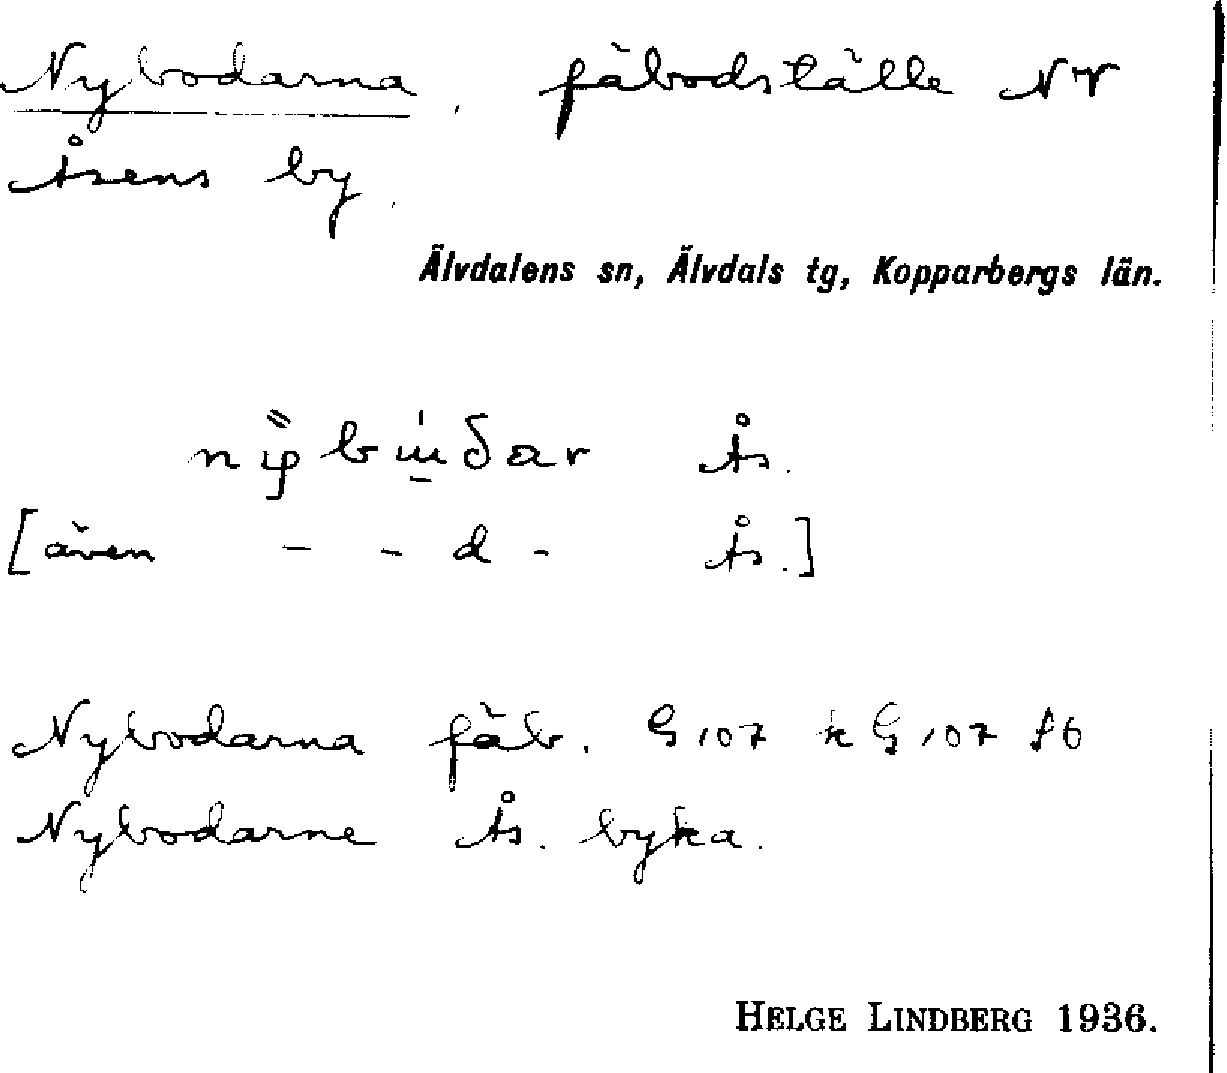 Nybodarna, fäbodställe NV
Åsens by.
Älvdalens sn, Älvdals tg, Kopparbergs län.
Ås.
[även - - d - Ås.]
Nybodarna fäb. G 107 k G 107 f 6
Nybodarne Ås. byka.
HELGE LINDBERG 1936.